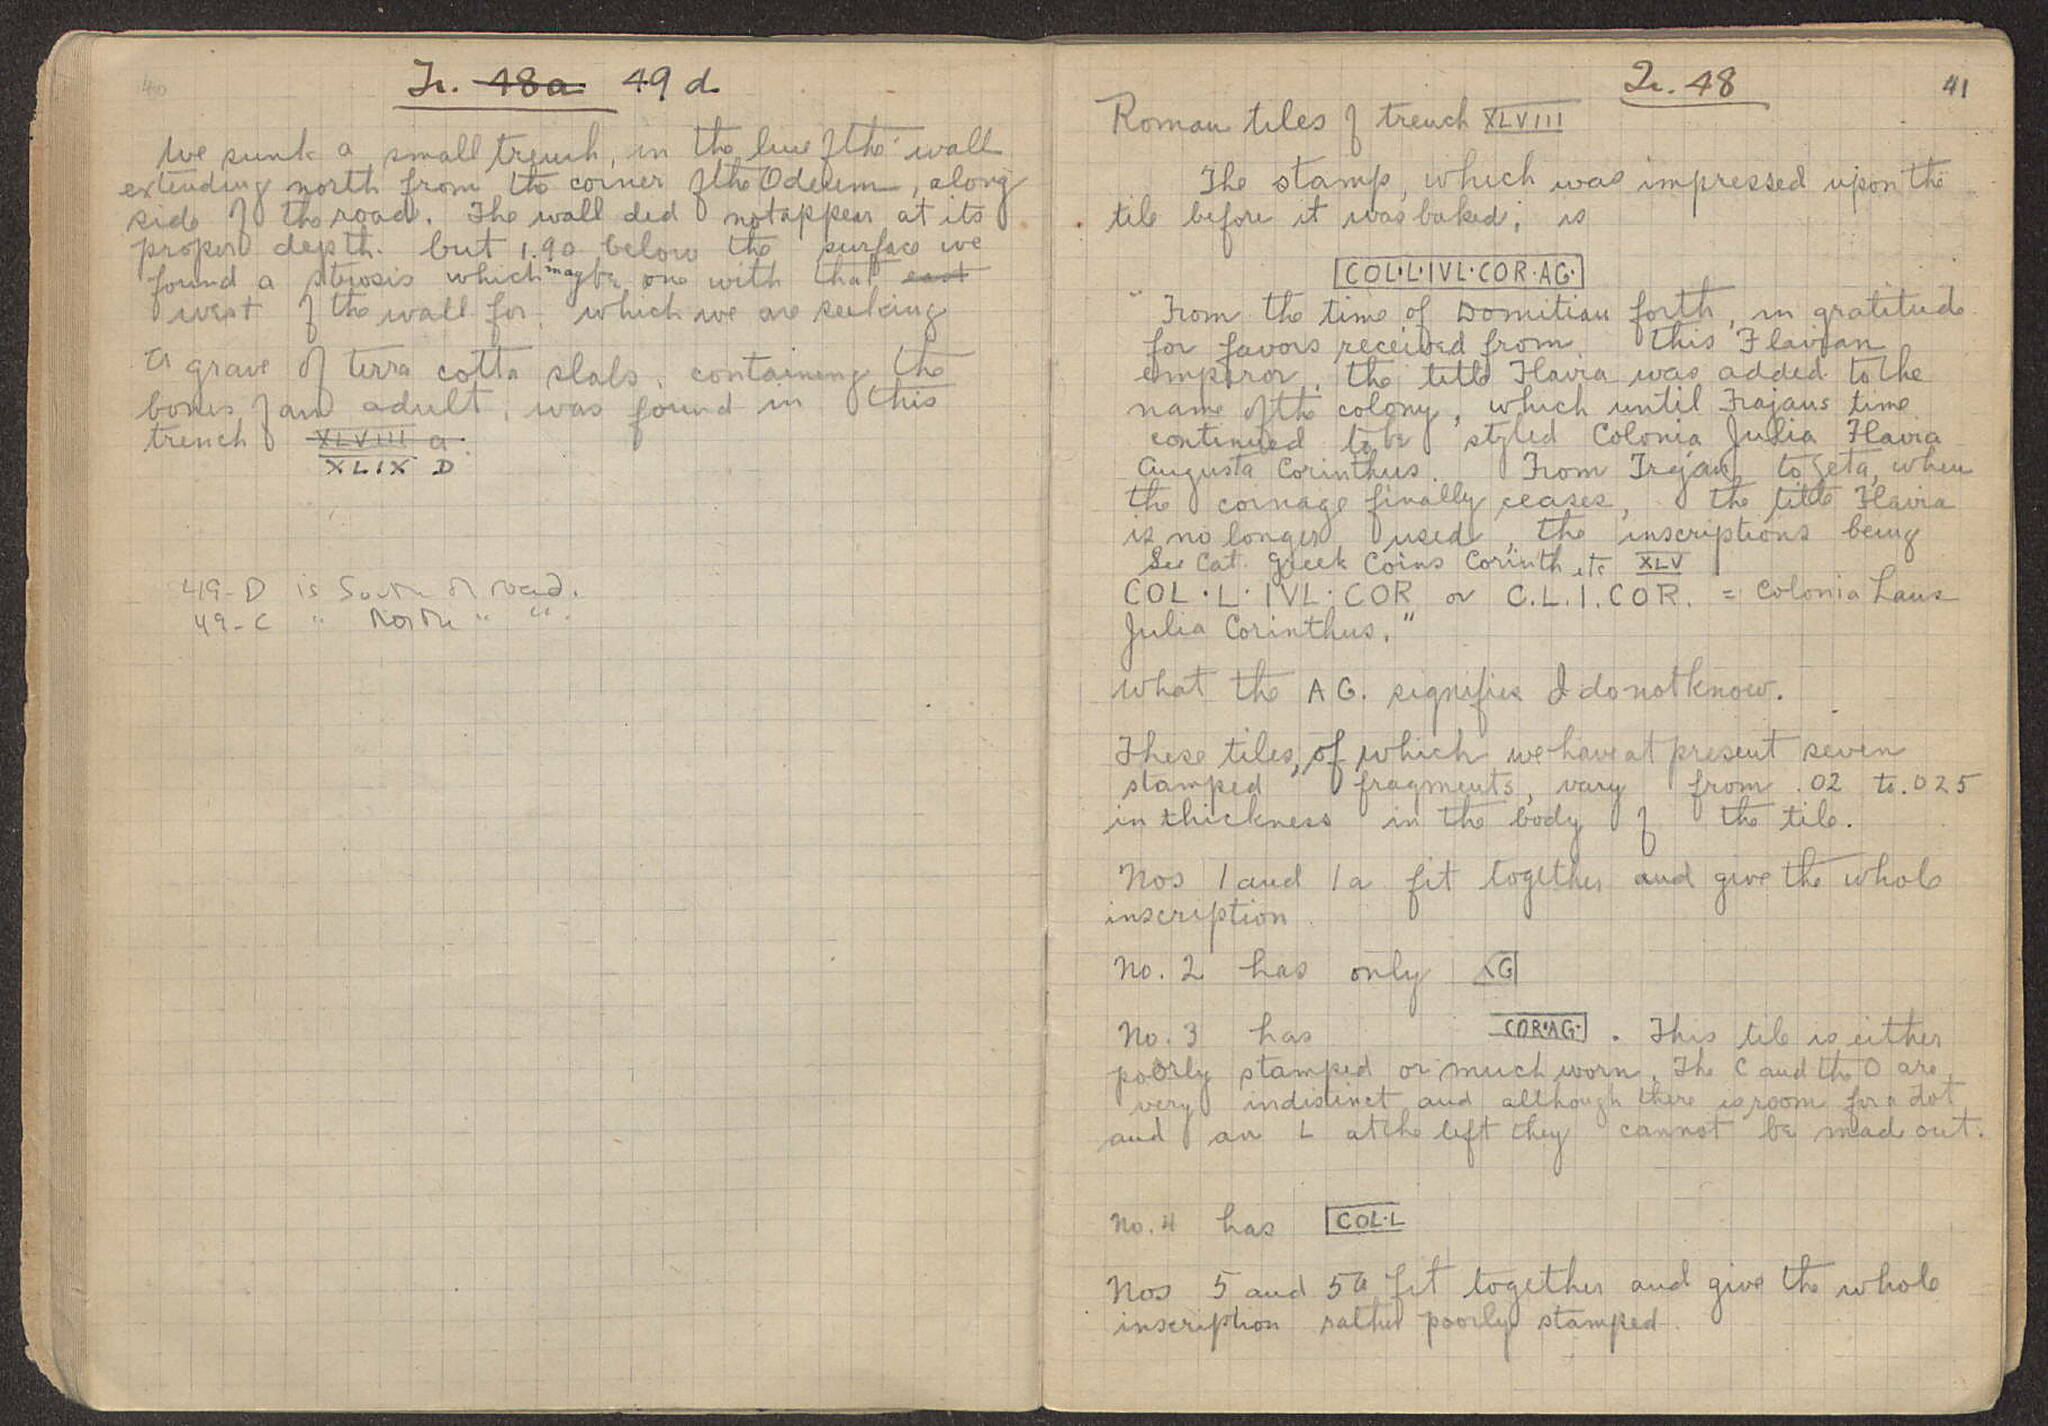 40
Tr. 48a 49 d
We sunk a small trench, in the line of the wall
extending north from the corner of the Odeum, along
side of the road. The wall did not appear at its
proper depth. but 1.90 below the surface we
found a sterosis which may be one with that east
west of the wall for which we are seeking
A grave of terra cotta slabs, containing the
bones of an adult, was found in this
trench XLVIII a.
XLIX D
49-D is South of road.
49-C " North " ".
Tr. 48
41
Roman tiles of trench XLVIII
The stamp, which was impressed upon the
tile before it was baked, is
COL·L·IVL·COR·AG·
"From the time of Domitian forth, in gratitude
for favors received from this Flavian
emperor, the title Flavia was added to the
name of the colony, which until Trajans time
continued to be styled Colonia Julia Flavia
Augusta Corinthus. From Trajan to Geta, when
the coinage finally ceases, the title Flavia
is no longer used, the inscriptions being
See Cat. Greek Coins Corinth etc XLV
COL·L·IVL·COR or C.L.I.COR. = Colonia Laus
Julia Corinthus."
What the AG. signifies I do not know.
These tiles, of which we have at present seven
stamped fragments, vary from .02 to .025
in thickness in the body of the tile.
Nos 1 and 1a fit together and give the whole
inscription.
No. 2 has only AG
No. 3 has COR·AG· . This tile is either
poorly stamped or much worn. The C and the O are
very indistinct and although there is room for a dot
and an L at the left they cannot be made out.
No. 4 has COL·L
Nos 5 and 5a fit together and give the whole
inscription rather poorly stamped.